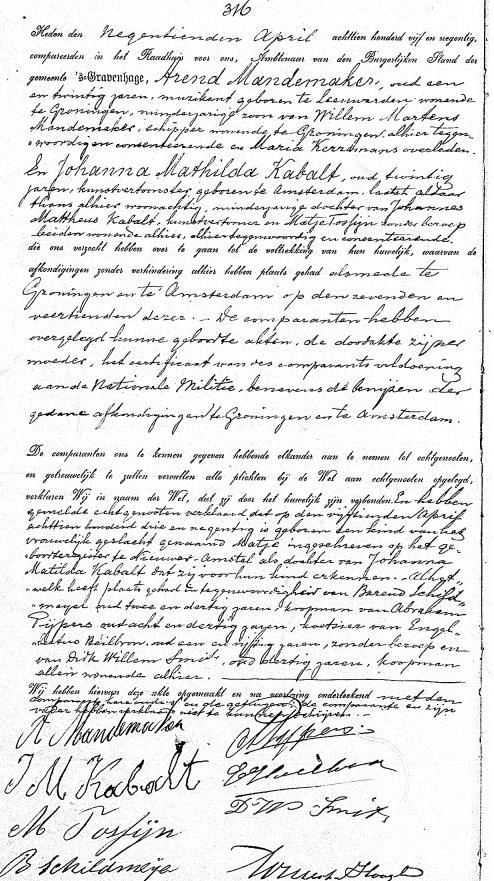 316
Heden den negentienden April achttien honderd vijf en negentig,
compareerden in het Raadhuis voor ons, Ambtenaar van den Burgerlijken Stand der
gemeente 's-Gravenhage, Arend Mandemaker, oud een
en twintig jaren, muzikant geboren te Leeuwarden wonende
te Groningen, minderjarige zoon van Willem Martens
Mandemaker, schipper wonende te Groningen, alhier tegen-
woordig en consenteerende en Maria Kerremans overleden.
En Johanna Mathilda Kabalt, oud twintig
jaren, kunstvertoonster geboren te Amsterdam, laatst aldaar
thans alhier woonachtig, minderjarige dochter van Johannes
Mattheus Kabalt, kunstvertooner en Matje Tosfijn zonder beroep
beiden wonende alhier, alhier tegenwoordig en consenteerende
die ons verzocht hebben over te gaan tot de voltrekking van hun huwelijk, waarvan de
afkondigingen zonder verhindering alhier hebben plaats gehad alsmede te
Groningen en te Amsterdam op den zevenden en
veertienden dezer. De comparanten hebben
overgelegd hunne geboorte akten, de doodakte zijner
moeder, het certificaat van des comparants voldoening
aan de Nationale Militie, benevens de bewijzen der
gedane afkondigingen te Groningen en te Amsterdam.
De comparanten ons te kennen gegeven hebbende elkander aan te nemen tot echtgenooten,
en getrouwelijk te zullen vervullen alle plichten bij de Wet aan echtgenooten opgelegd,
verklaren Wij in naam der Wet, dat zij door het huwelijk zijn verbonden. En hebben
gemelde echtgenooten verklaard dat op den vijftienden April
achttien honderd drie en negentig is geboren een kind van het
vrouwelijk geslacht genaamd Matje ingeschreven op het ge-
boorteregister te Nieuwer-Amstel als dochter van Johanna
Matilda Kabalt dat zij voor hun kind erkennen.
welk heeft plaats gehad in tegenwoordigheid van Barend Schild-
meyer oud twee en dertig jaren, koopman van Abraham
Pijpers oud acht en dertig jaren, koetsier van Engel-
Beilbron, oud een en vijftig jaren, zonder beroep en
van Dirk Willem Smit, oud dertig jaren, koopman
allen wonende alhier.
Wij hebben hiervan deze akte opgemaakt en na voorlezing onderteekend met den
comparant, hare ouders en de getuigen; de comparante en zijn
vader hebben verklaard niet te kunnen schrijven.
A Mandemaker
A Pijpers
J M Kabalt
M Tosfijn
D W Smit
B Schildmeije